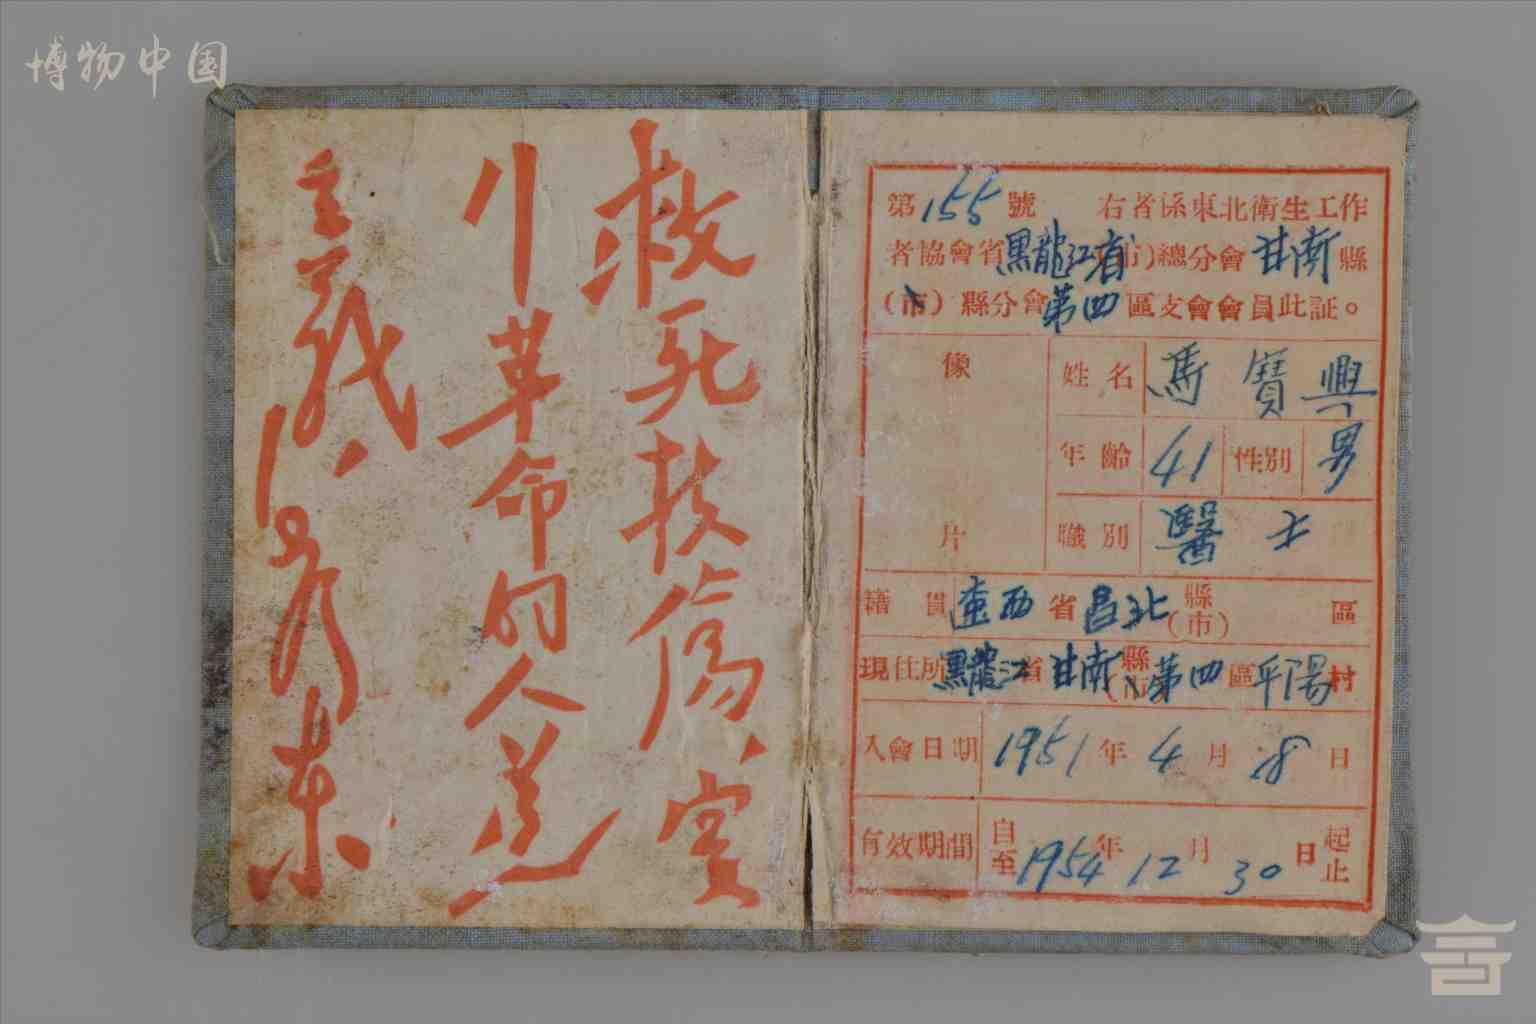 博物中国
救死扶傷，實
行革命的人道
主義。
毛澤東
第155號 右者係東北衛生工作
者協會省黑龍江省(市)總分會甘南縣
(市)縣分會第四區支會會員此証。
像片
姓名 馬寶興
年齡 41 性別 男
職別 醫士
籍貫 遼西省昌北縣(市) 區
現住所 黑龍江省甘南縣(市)第四區平陽村
入會日期 1951年4月28日
有效期間 自至1954年12月30日起止